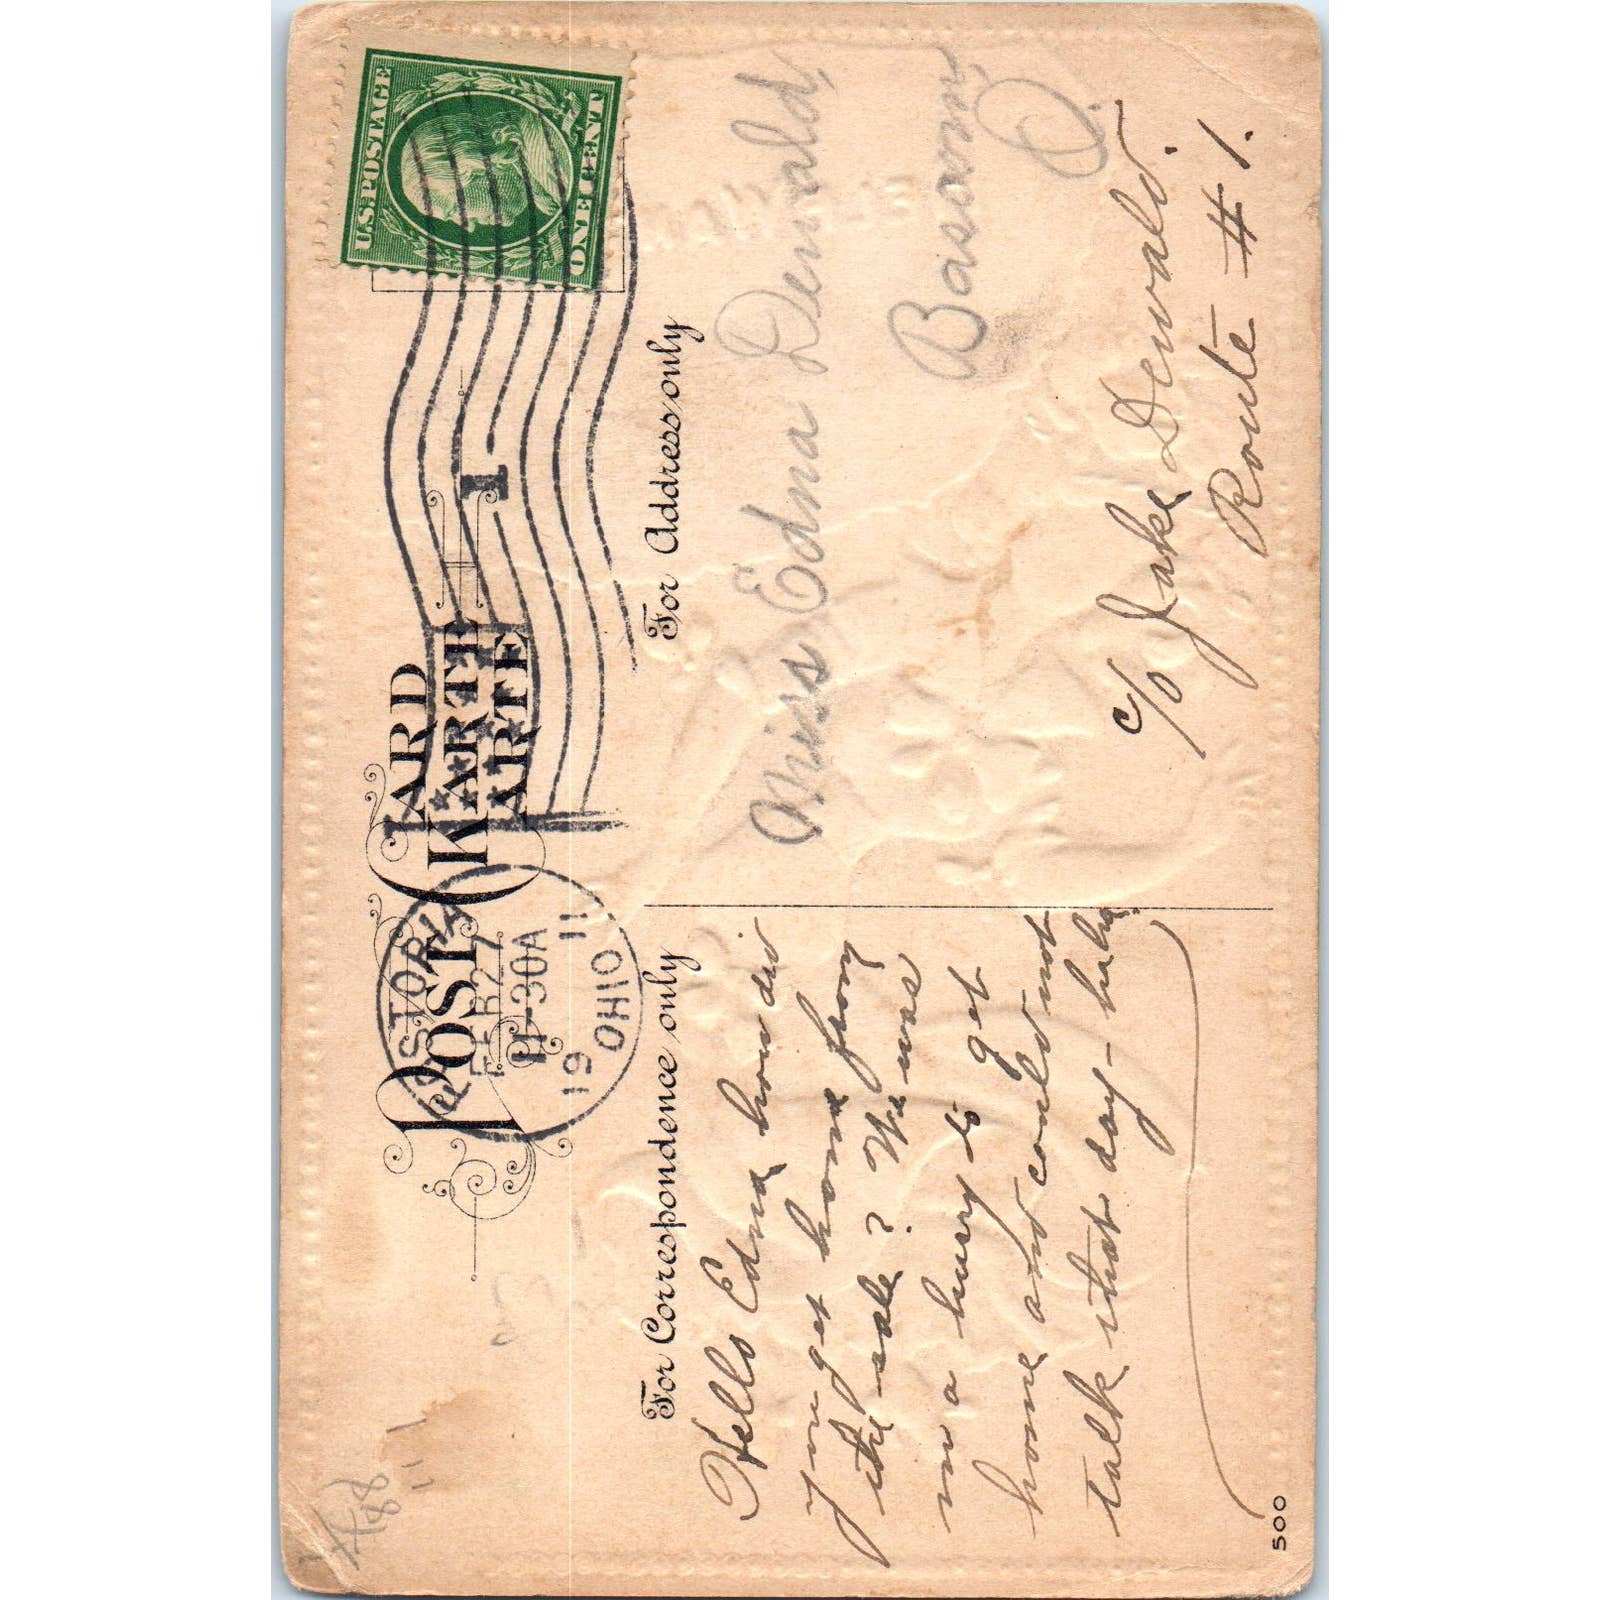 U.S. POSTAGE
ONE CENT
POST CARD
POST KARTE
CARTE
1
FOSTORIA
FEB 27
11-30A
19 11
OHIO
For Correspondence only
For Address only
Hello Edna how did
you get home from
the sale? We was
in a hurry to get
home and could not
talk that day - haha
Miss Edna Denwald,
Bascom,
O.
c/o Jake Denwald.
Route # 1.
500